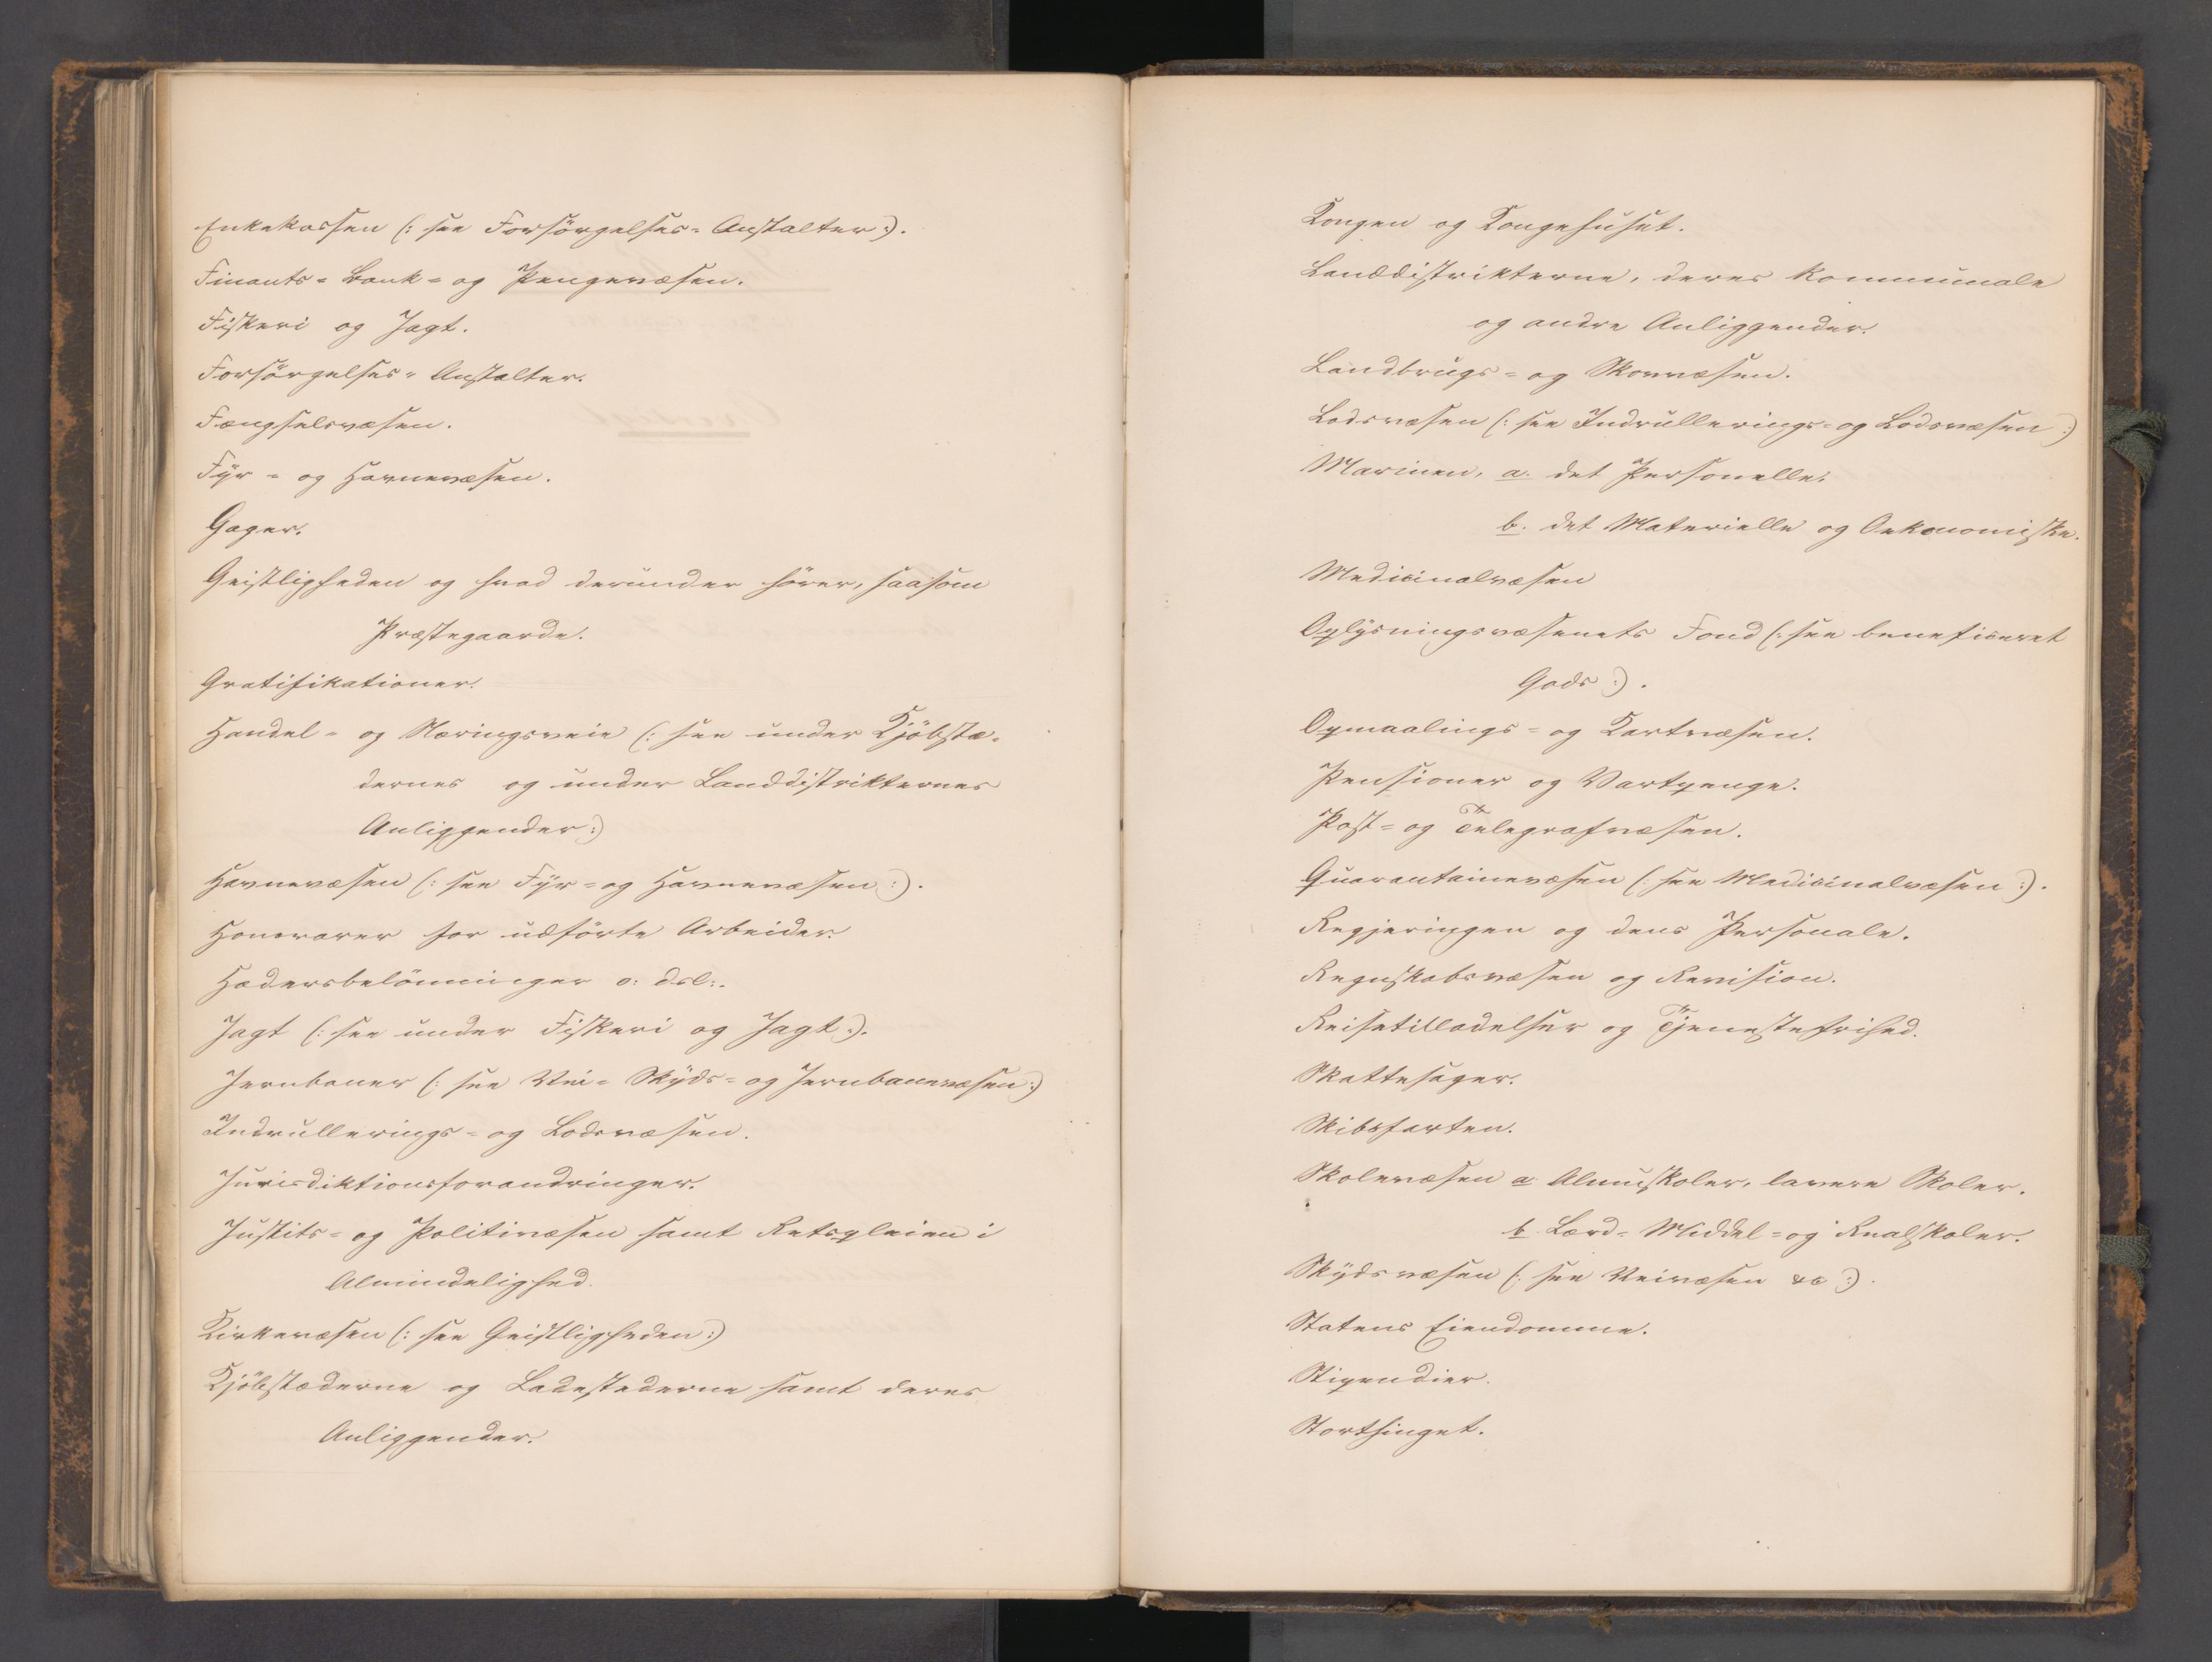 Enkekassen (: see Forsörgelses-Anstalter:).
Finants- Bank- og Pengevæsen.
Fiskeri og Jagt.
Forsörgelses-Anstalter.
Fængselsvæsen.
Fyr- og Havnevæsen.
Gager.
Geistligheden og hvad derunder hörer, saasom
Præstegaarde.
Gratifikationer.
Handel- og Næringsveie (: see under Kjöbstæ-
dernes og under Landdistrikternes
Anliggender:)
Havnevæsen (: see Fyr- og Havnevæsen:).
Honorarer for udförte Arbeider.
Hædersbelönninger o: dsl:.
Jagt (: see under Fiskeri og Jagt:).
Jernbaner (: see Vei- Skyds- og Jernbanevæsen:)
Indrullerings- og Lodsvæsen.
Jurisdiktionsforandringer.
Justits- og Politivæsen samt Retspleien i
Almindelighed.
Kirkevæsen (: see Geistligheden:)
Kjöbstæderne og Ladestederne samt deres
Anliggender.
Kongen og Kongehuset.
Landdistrikterne, deres kommunale
og andre Anliggender.
Landbrugs- og Skovvæsen.
Lodsvæsen (: see Indrullerings- og Lodsvæsen:)
Marinen, a. det Personelle.
b. det Materielle og Oekonomiske.
Medicinalvæsen
Oplysningsvæsenets Fond (: see beneficeret
Gods:).
Opmaalings- og Kartvæsen.
Pensioner og Vartpenge.
Post- og Telegrafvæsen.
Quarantainevæsen (: see Medicinalvæsen:).
Regjeringen og dens Personale.
Regnskabsvæsen og Revision.
Reisetilladelser og Tjenestefrihed.
Skattesager.
Skibsfarten.
Skolevæsen a. Almuskoler, lavere Skoler.
b. Lærd- Middel- og Realskoler.
Skydsvæsen (: see Veivæsen &c:).
Statens Eiendomme.
Stipendier.
Storthinget.